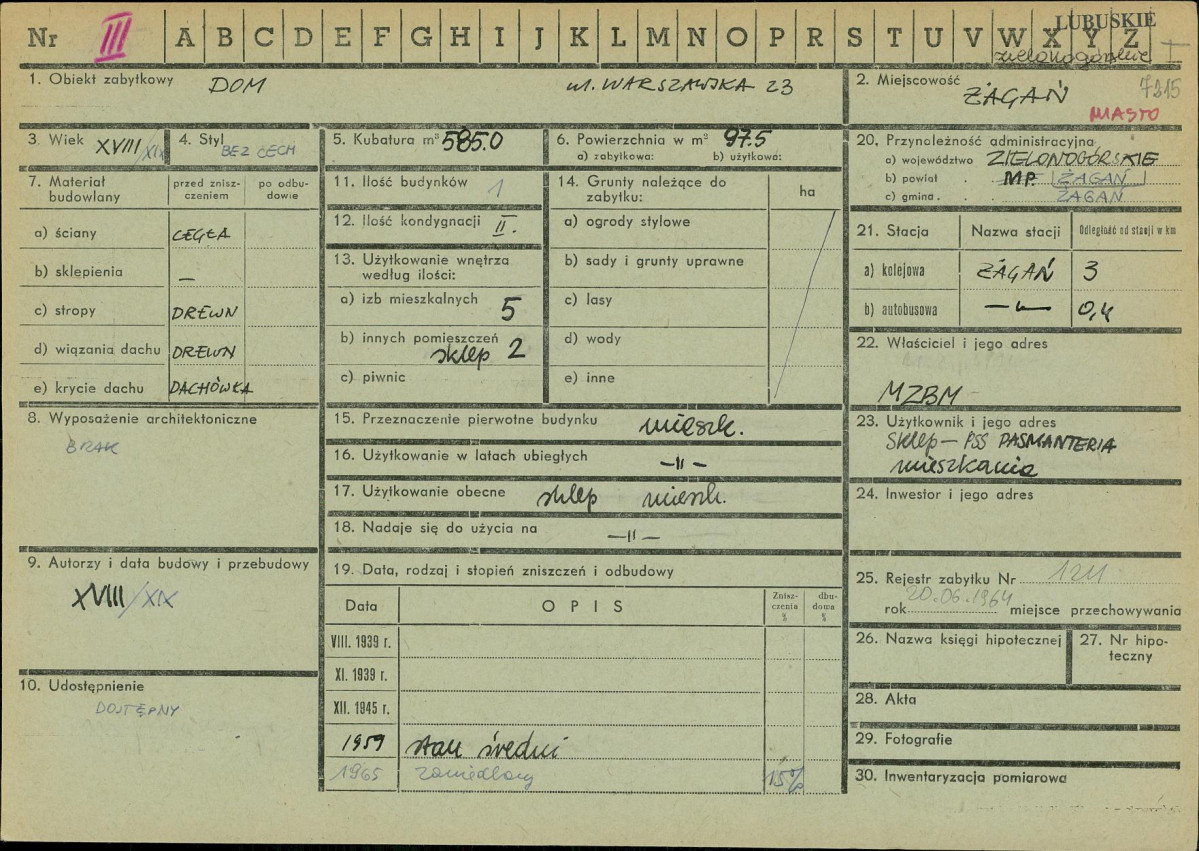 Nr III A B C D E F G H I J K L M N O P R S T U V W X Y Z
LUBUSKIE
zielonogórskie I
1. Obiekt zabytkowy DOM ul. WARSZAWSKA 23
2. Miejscowość 7215
ŻAGAŃ
MIASTO
3. Wiek XVIII/XIX
4. Styl BEZ CECH
5. Kubatura m³ 585.0
6. Powierzchnia w m² 97.5
a) zabytkowa: b) użytkowa:
7. Materiał budowlany
przed znisz-
czeniem
po odbu-
dowie
a) ściany CEGŁA
b) sklepienia —
c) stropy DREWN
d) wiązania dachu DREWN
e) krycie dachu DACHÓWKA
8. Wyposażenie architektoniczne
BRAK
9. Autorzy i data budowy i przebudowy
XVIII/XIX
10. Udostępnienie
DOSTĘPNY
11. Ilość budynków 1
12. Ilość kondygnacji II.
13. Użytkowanie wnętrza
według ilości:
a) izb mieszkalnych 5
b) innych pomieszczeń
sklep 2
c) piwnic
14. Grunty należące do
zabytku:
ha
a) ogrody stylowe
b) sady i grunty uprawne
c) lasy
d) wody
e) inne
15. Przeznaczenie pierwotne budynku mieszk.
16. Użytkowanie w latach ubiegłych —II—
17. Użytkowanie obecne sklep mieszk.
18. Nadaje się do użycia na —II—
19. Data, rodzaj i stopień zniszczeń i odbudowy
Data OPIS
Znisz-
czenia
%
dbu-
dowa
%
VIII. 1939 r.
XI. 1939 r.
XII. 1945 r.
1959 stan średni
1965 zaniedbany 15%
20. Przynoleżność administracyjna
a) województwo ZIELONOGÓRSKIE
b) powiat MP. ŻAGAŃ
c) gmina ŻAGAŃ
21. Stacja Nazwa stacji Odległość od stacji w km
a) kolejowa ŻAGAŃ 3
b) autobusowa —"— 0,4
22. Właściciel i jego adres
MZBM
23. Użytkownik i jego adres
sklep — PSS PASMANTERIA
mieszkania
24. Inwestor i jego adres
25. Rejestr zabytku Nr 1211
rok 20.06.1964 miejsce przechowywania
26. Nazwa księgi hipotecznej
27. Nr hipo-
teczny
28. Akta
29. Fotografie
30. Inwentaryzacja pomiarowa